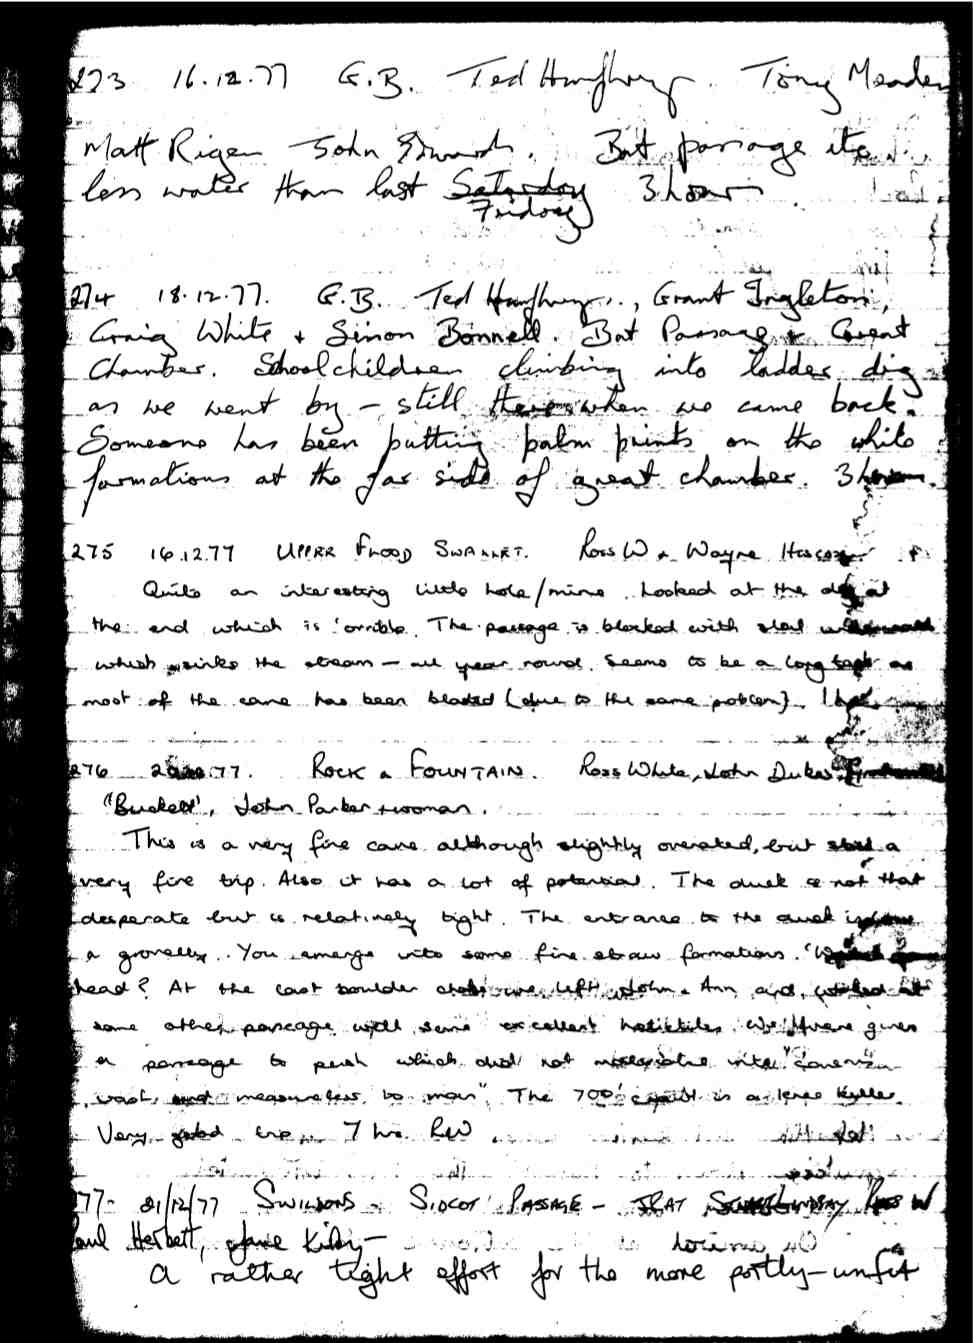 273 16.12.77 G.B. Ted Humphreys. Tony Meaden
Matt Rigen John Edwards. Bat passage etc
less water than last Saturday 3 hours
Friday
274 18.12.77. G.B. Ted Humphreys, Grant Ingleton,
Craig White + Simon Bonnell. Bat Passage + Great
Chamber. Schoolchildren climbing into ladder dig
as we went by - still there when we came back.
Someone has been putting palm prints on the white
formations at the far side of great chamber. 3 hours.
275 16.12.77 UPPER FLOOD SWALLET. Ross W & Wayne
Quite an interesting little hole/mine. Looked at the dig at
the end which is 'orrible. The passage is blocked with
which sinks the stream - all year round. Seems to be a long task as
most of the cave has been blasted (due to the same problem).
276 77. ROCK & FOUNTAIN. Ross White, John Dukes,
"Buckett", John Parker + woman.
This is a very fine cave although slightly overated, but still a
very fine trip. Also it has a lot of potential. The duck is not that
desperate but is relatively tight. The entrance to the duck is
a grovelly. You emerge into some fine straw formations.
head? At the last boulder we left John & Ann and looked at
some other passage with some excellent helictites. We were given
a passage to push which did not materialise into "cavern
vast and measureless to man". The 700' crawl is a knee killer.
Very good trip. 7 hrs. RW
77- 21/12/77 SWILDONS - SIDCOT PASSAGE - LINDSAY ROSS W
Paul Herbert, Jane Kirby -
A rather tight effort for the more portly-unfit